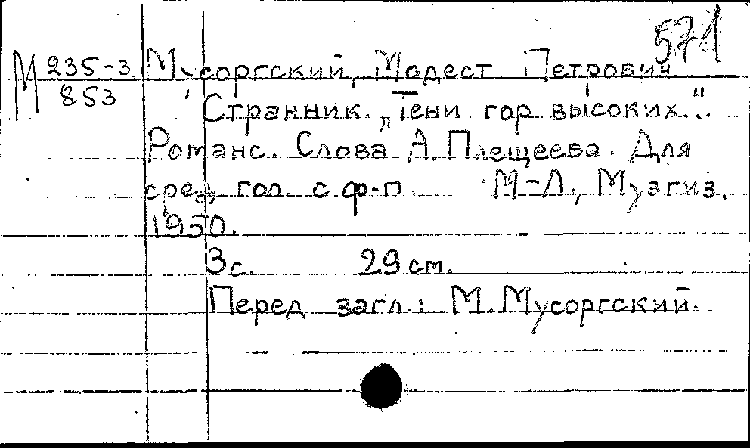 571
М 235-3 Мусоргский, Модест Петрович
853
Странник. „Тени гор высоких.“.
Романс. Слова А. Плещеева. Для
сред. гол. с ф-п М-Л, Музгиз.
1950.
3с. 29 см.
Перед загл.: М. Мусоргский.